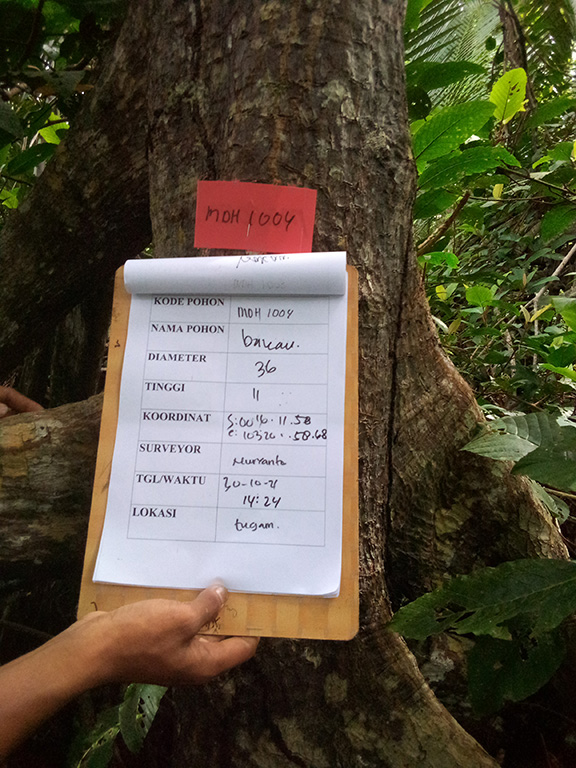 MDH 1004
KODE POHON MDH 1004
NAMA POHON bakau.
DIAMETER 36
TINGGI 11
KOORDINAT S:0016.11.58
E: 10320..58.68
SURVEYOR Muryanto
TGL/WAKTU 30-10-21
14:24
LOKASI tugam.